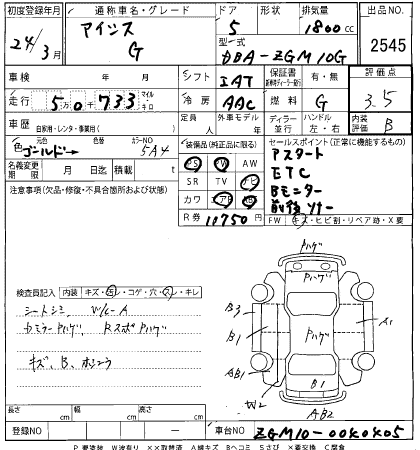 初度登録年月 通称車名・グレード ドア 形状 排気量 出品NO.
24/3月 アイシス G 5 1800 CC 2545
型式
DBA-ZGM10G
車検 年 月 シフト IAT 保証書 有・無 評価点
走行 50733 万 千 マイル キロ 冷房 AAC 燃料 G 3.5
車歴 自家用・レンタ・事業用( ) 定員 人 外車モデル 年 ディーラー 並行 ハンドル 左・右 内装 B
色 元色 ゴールド→ 色替 カラーNO 5A4
名義変更期限 月 日迄 積載 t
装備品(純正品に限る) セールスポイント(正常に機能するもの)
PS PW AW アスタート
SR TV ナビ ETC
カワ Bモニター
R券 11750 円 前後ソナー
注意事項(欠品・修復・不具合箇所および状態)
FW キズ・ヒビ割・リペア跡・X要
検査員記入 内装 キズ・凹レ・コゲ・穴・スレ・キレ
シートシミ W/L-A
カミラーPハゲ RスポPハゲ
キズ、B、ホコウ
Pハゲ
Pハゲ
B3
B1
A1
AB1
B1
W2
AB2
長さ cm 幅 cm 高さ cm
登録NO 車台NO ZGM10-00K0K05
P要塗装 W波有り ××取替済 A線キズ Bヘコミ Sさび ×要交換 C腐食